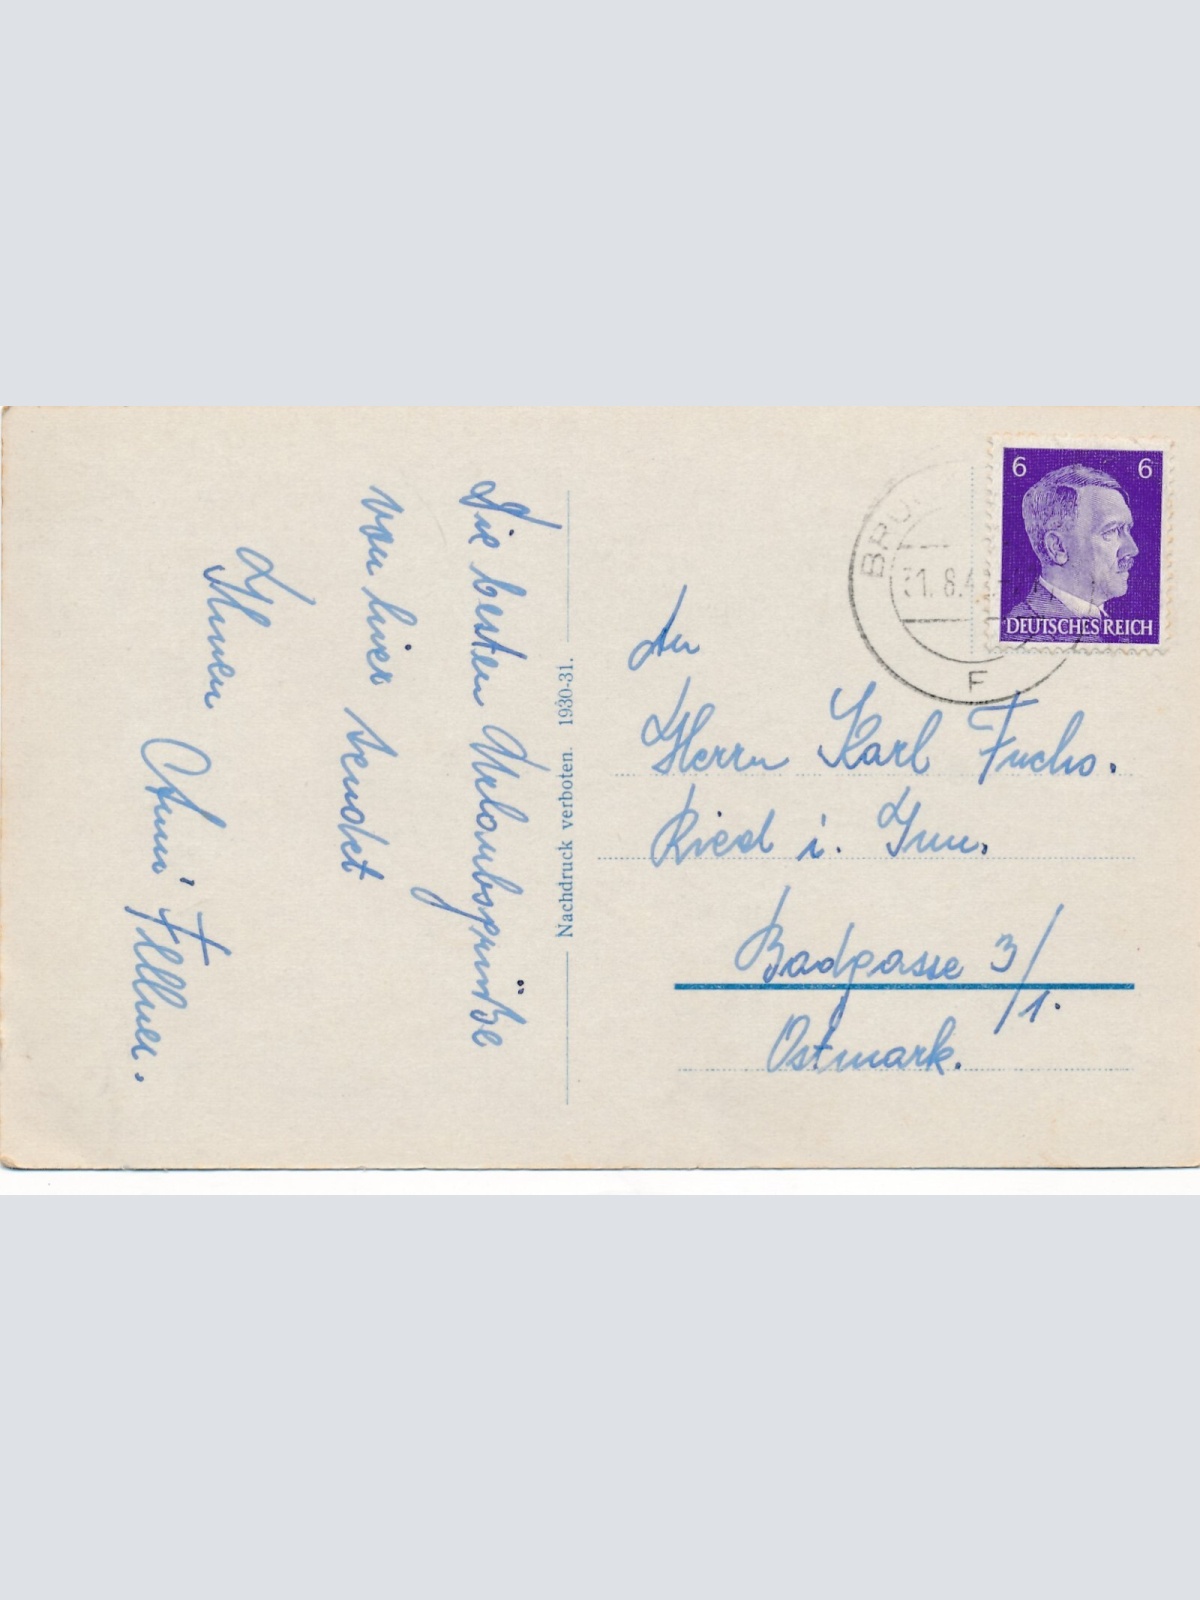 Die besten Urlaubsgrüße
von hier sendet
Ihnen
Anni Fellner.
Nachdruck verboten. 1930-31.
6 6
DEUTSCHES REICH
31.8.4
F
An
Herrn Karl Fuchs.
Ried i. Inn.
Badgasse 3/1.
Ostmark.